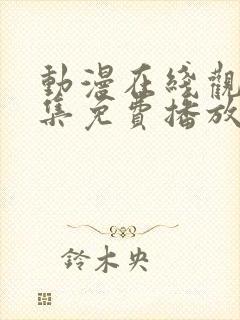 動漫在綫觀
集免費播放
鈴木央